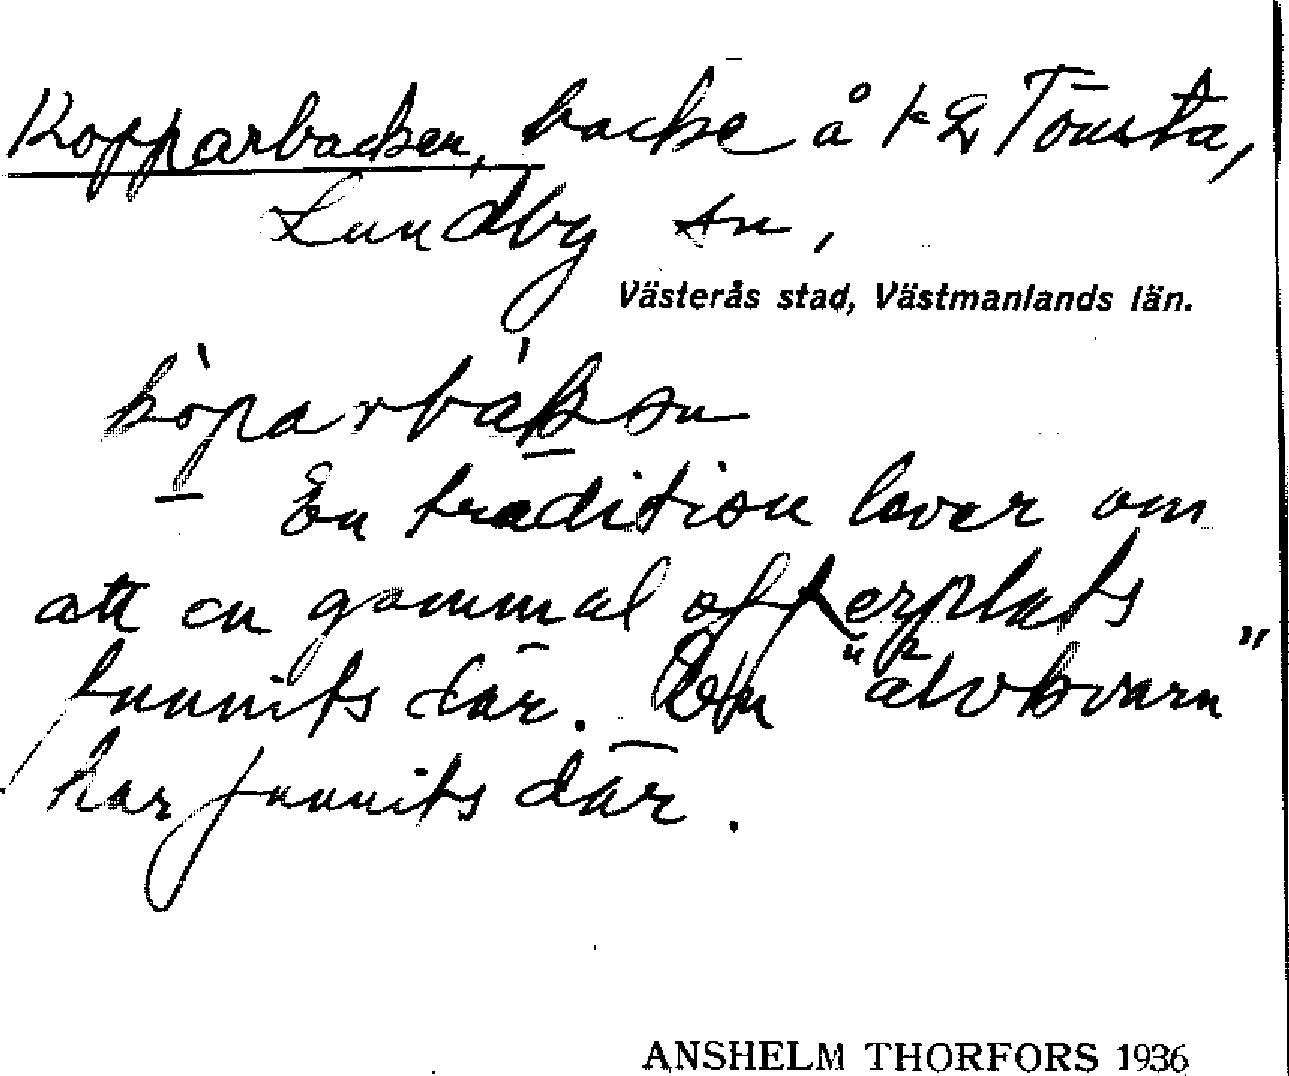 Kopparbacken, backe å 1-2 Tömsta,
Lundby sn,
Västerås stad, Västmanlands län.
En tradition lever om
att en gammal offerplats
funnits där. En "älvkvarn"
har funnits där.
ANSHELM THORFORS 1936